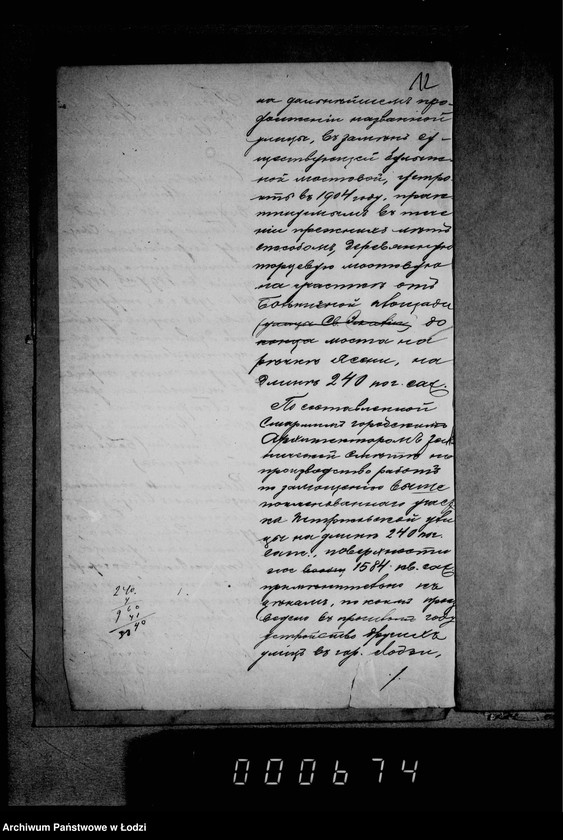 12
на дальнейшемъ про-
долженіи названной
улицы, взамѣнъ су-
ществующей булыж-
ной мостовой, устро-
ить въ 1904 году, практ
тикуемымъ въ тече-
ніи прежнихъ лѣтъ
способомъ, деревянную
торцевую мостовую
на участкѣ отъ
площади
(улица Св. до
конца моста на
рѣчкѣ Ясени, на
длинѣ 240 пог. саж.
По составленной
Старшимъ городскимъ
Архитекторомъ тех-
нической смѣтѣ на
производство работъ
по замощенію выше
поименованнаго участ
ка Петроковской ули
цы на длинѣ 240 пог.
саж., поверхностью
1584 кв. саж.
примѣнительно къ
цѣнамъ, по коимъ прои
ведено въ прошломъ году
устройство другихъ
улицъ въ гор. Лодзи,
./.
240
000674
Archiwum Państwowe w Łodzi